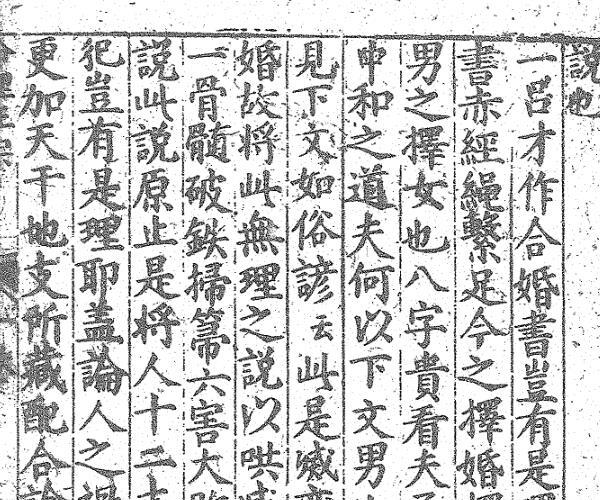 說也
一呂才作合婚書豈有是
書赤經繩繫足今之擇婚
男之擇女也八字貴看夫
中和之道夫何以下文男
見下文如俗諺云此是滅
婚故將此無理之說以哄
一骨髓破鉄掃箒六害大
說此說原止是將人十二
犯豈有是理耶盖論人之
更加天干地支所藏配合